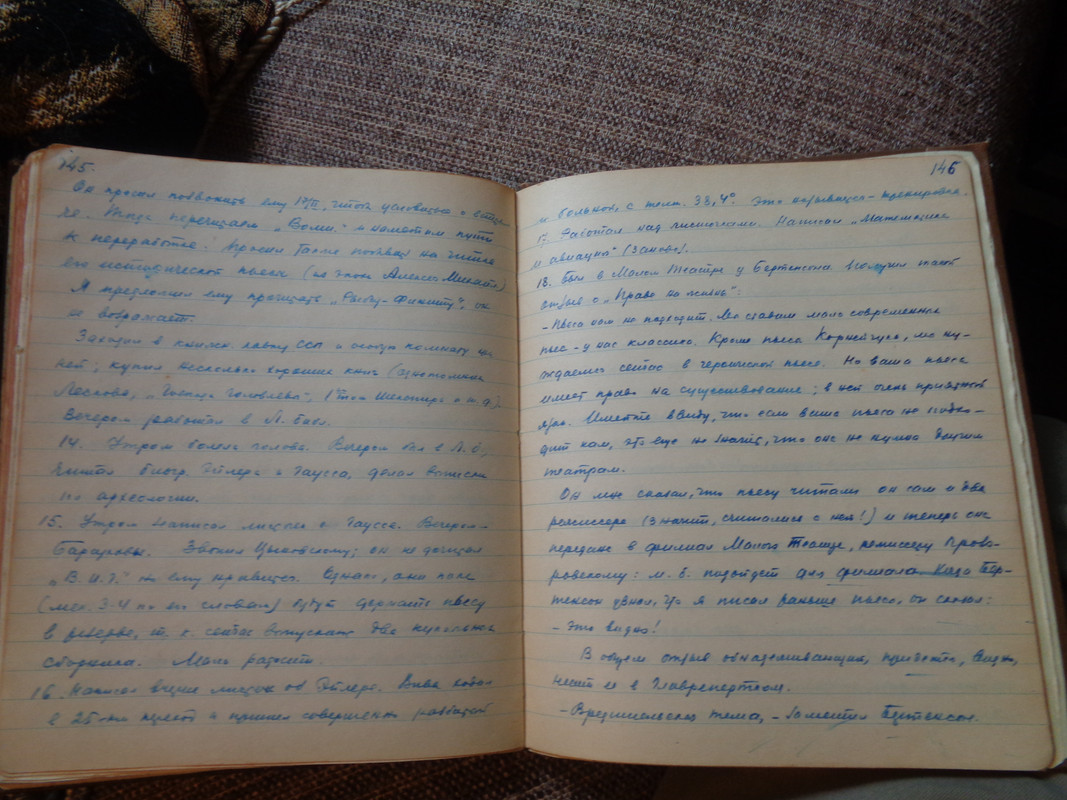 145.
Он просил позвонить ему 17/III, чтоб условиться о встре-
че. Тогда перечитаем „Волш." и наметим пути
к переработке. Просил также подвал на чтение
его исторической пьесы (по Алексею Михайл.)
Я предложил ему прочитать „Рыбу-Финиту", он
не возражает.
Заходил в книжн. лавку ССП и особую комнату
ней; купил несколько хороших книг (однотомник
Лескова, 1 том Шекспира и т.д.)
Вечером работал в Л. библ.
14. Утром болела голова. Вечером был в Л.б.,
читал биогр. Эйлера и Гаусса, делал выписки
по археологии.
15. Утром написал листок о Гауссе. Вечером-
Звонил Цыновскому; он не дочитал
„В.И.Г." но ему нравится. Однако, они пока
(мес. 3-4 по его словам) будут держать пьесу
в резерве, т.к. сейчас выпускают два кукольных
сборника. Мало радости.
16. Написал вчерне листок об Эйлере. Вива копал
в 25-ти и пришел совершенно разбитый
146
и больной, с темп. 38,4° Это называется-тренировка.
17. Работал над листочками. Написал „Математика
и авиация" (заново).
18. Был в Малом Театре у Бертенсона. Получил такой
отзыв о „Право на жизнь":
- Пьеса нам не подходит. Мы ставим мало современных
пьес - у нас классика. Кроме пьесы Корнейчука, мы ну-
ждаемся сейчас в героической пьесе. Но ваша пьеса
имеет право на существование; в ней очень приятный
язык. Имейте ввиду, что если ваша пьеса не подхо-
дит нам, это еще не значит, что она не нужна другим
театрам.
Он мне сказал, что пьесу читали он сам и два
режиссера (значит, считались с ней!) и теперь она
передана в филиал Малого Театра, режиссеру Прова-
ровскому: м.б. подойдет для филиала. Когда Бер-
тенсон узнал, что я писал раньше пьесы, он сказал:
- Это видно!
В общем отзыв обнадеживающий, придется, видно,
нести ее в Главрепертком.
- Вредительская тема, - заметил Бертенсон.